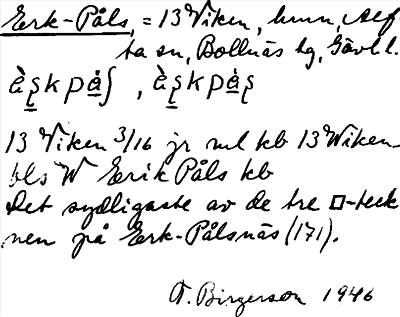 Erk-Påls, = 13 Viken, hmn, Alf-
ta sn, Bollnäs tg, Gävl l.
13 Viken 3/16 jr ml kb 13 Wiken
bls W Erik Påls kb
Det sydligaste av de tre □-teck
nen på Erk-Pålsnäs (171).
T. Birgerson 1946